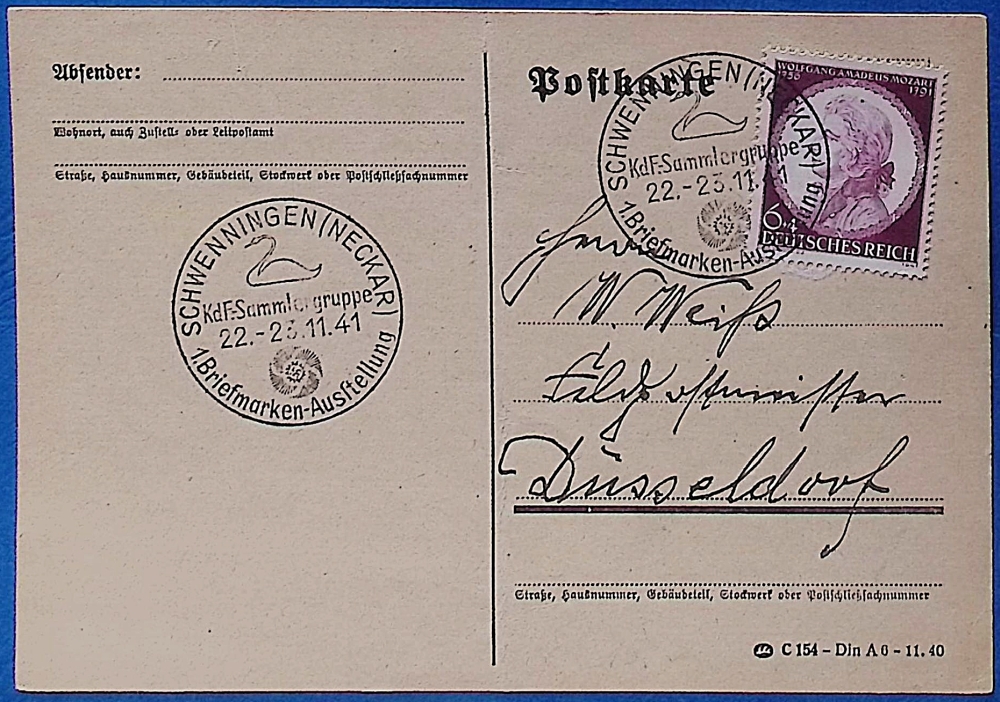 Absender:
Wohnort, auch Zustell- oder Leitpostamt
Straße, Hausnummer, Gebäudeteil, Stockwerk oder Postschließfachnummer
SCHWENNINGEN (NECKAR)
KdF.-Sammlergruppe
22.-23.11.41
1. Briefmarken-Ausstellung
Postkarte
SCHWENNINGEN (NECKAR)
KdF.-Sammlergruppe
22.-23.11.41
1. Briefmarken-Ausstellung
WOLFGANG AMADEUS MOZART
1756 1791
6+4
DEUTSCHES REICH
W. Weiß
Feldpostmeister
Düsseldorf
Straße, Hausnummer, Gebäudeteil, Stockwerk oder Postschließfachnummer
C 154 – Din A 6 – 11. 40